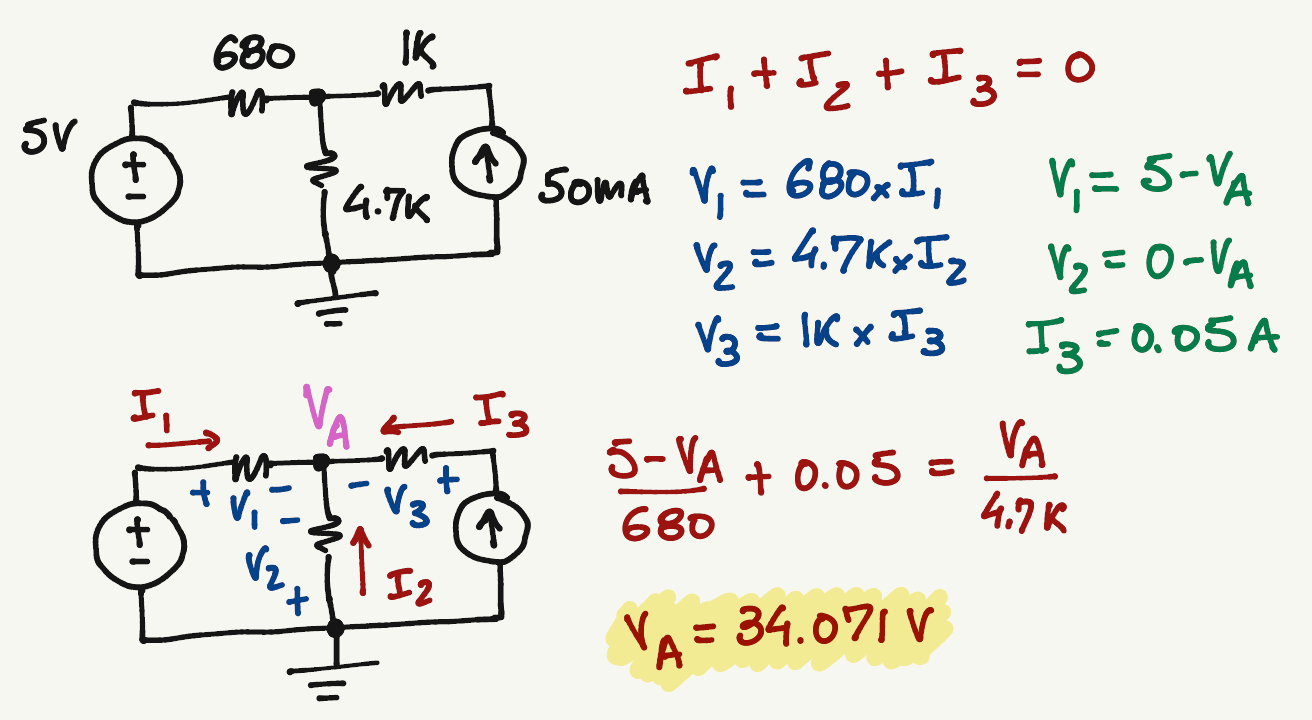 680
1K
5V
+
-
4.7K
50mA
I₁ + I₂ + I₃ = 0
V₁ = 680 x I₁
V₁ = 5 - V_A
V₂ = 4.7K x I₂
V₂ = 0 - V_A
V₃ = 1K x I₃
I₃ = 0.05 A
I₁
V_A
I₃
+ V₁ -
- V₃ +
+
-
-
V₂
+
I₂
(5 - V_A)/680 + 0.05 = V_A/4.7K
V_A = 34.071 V